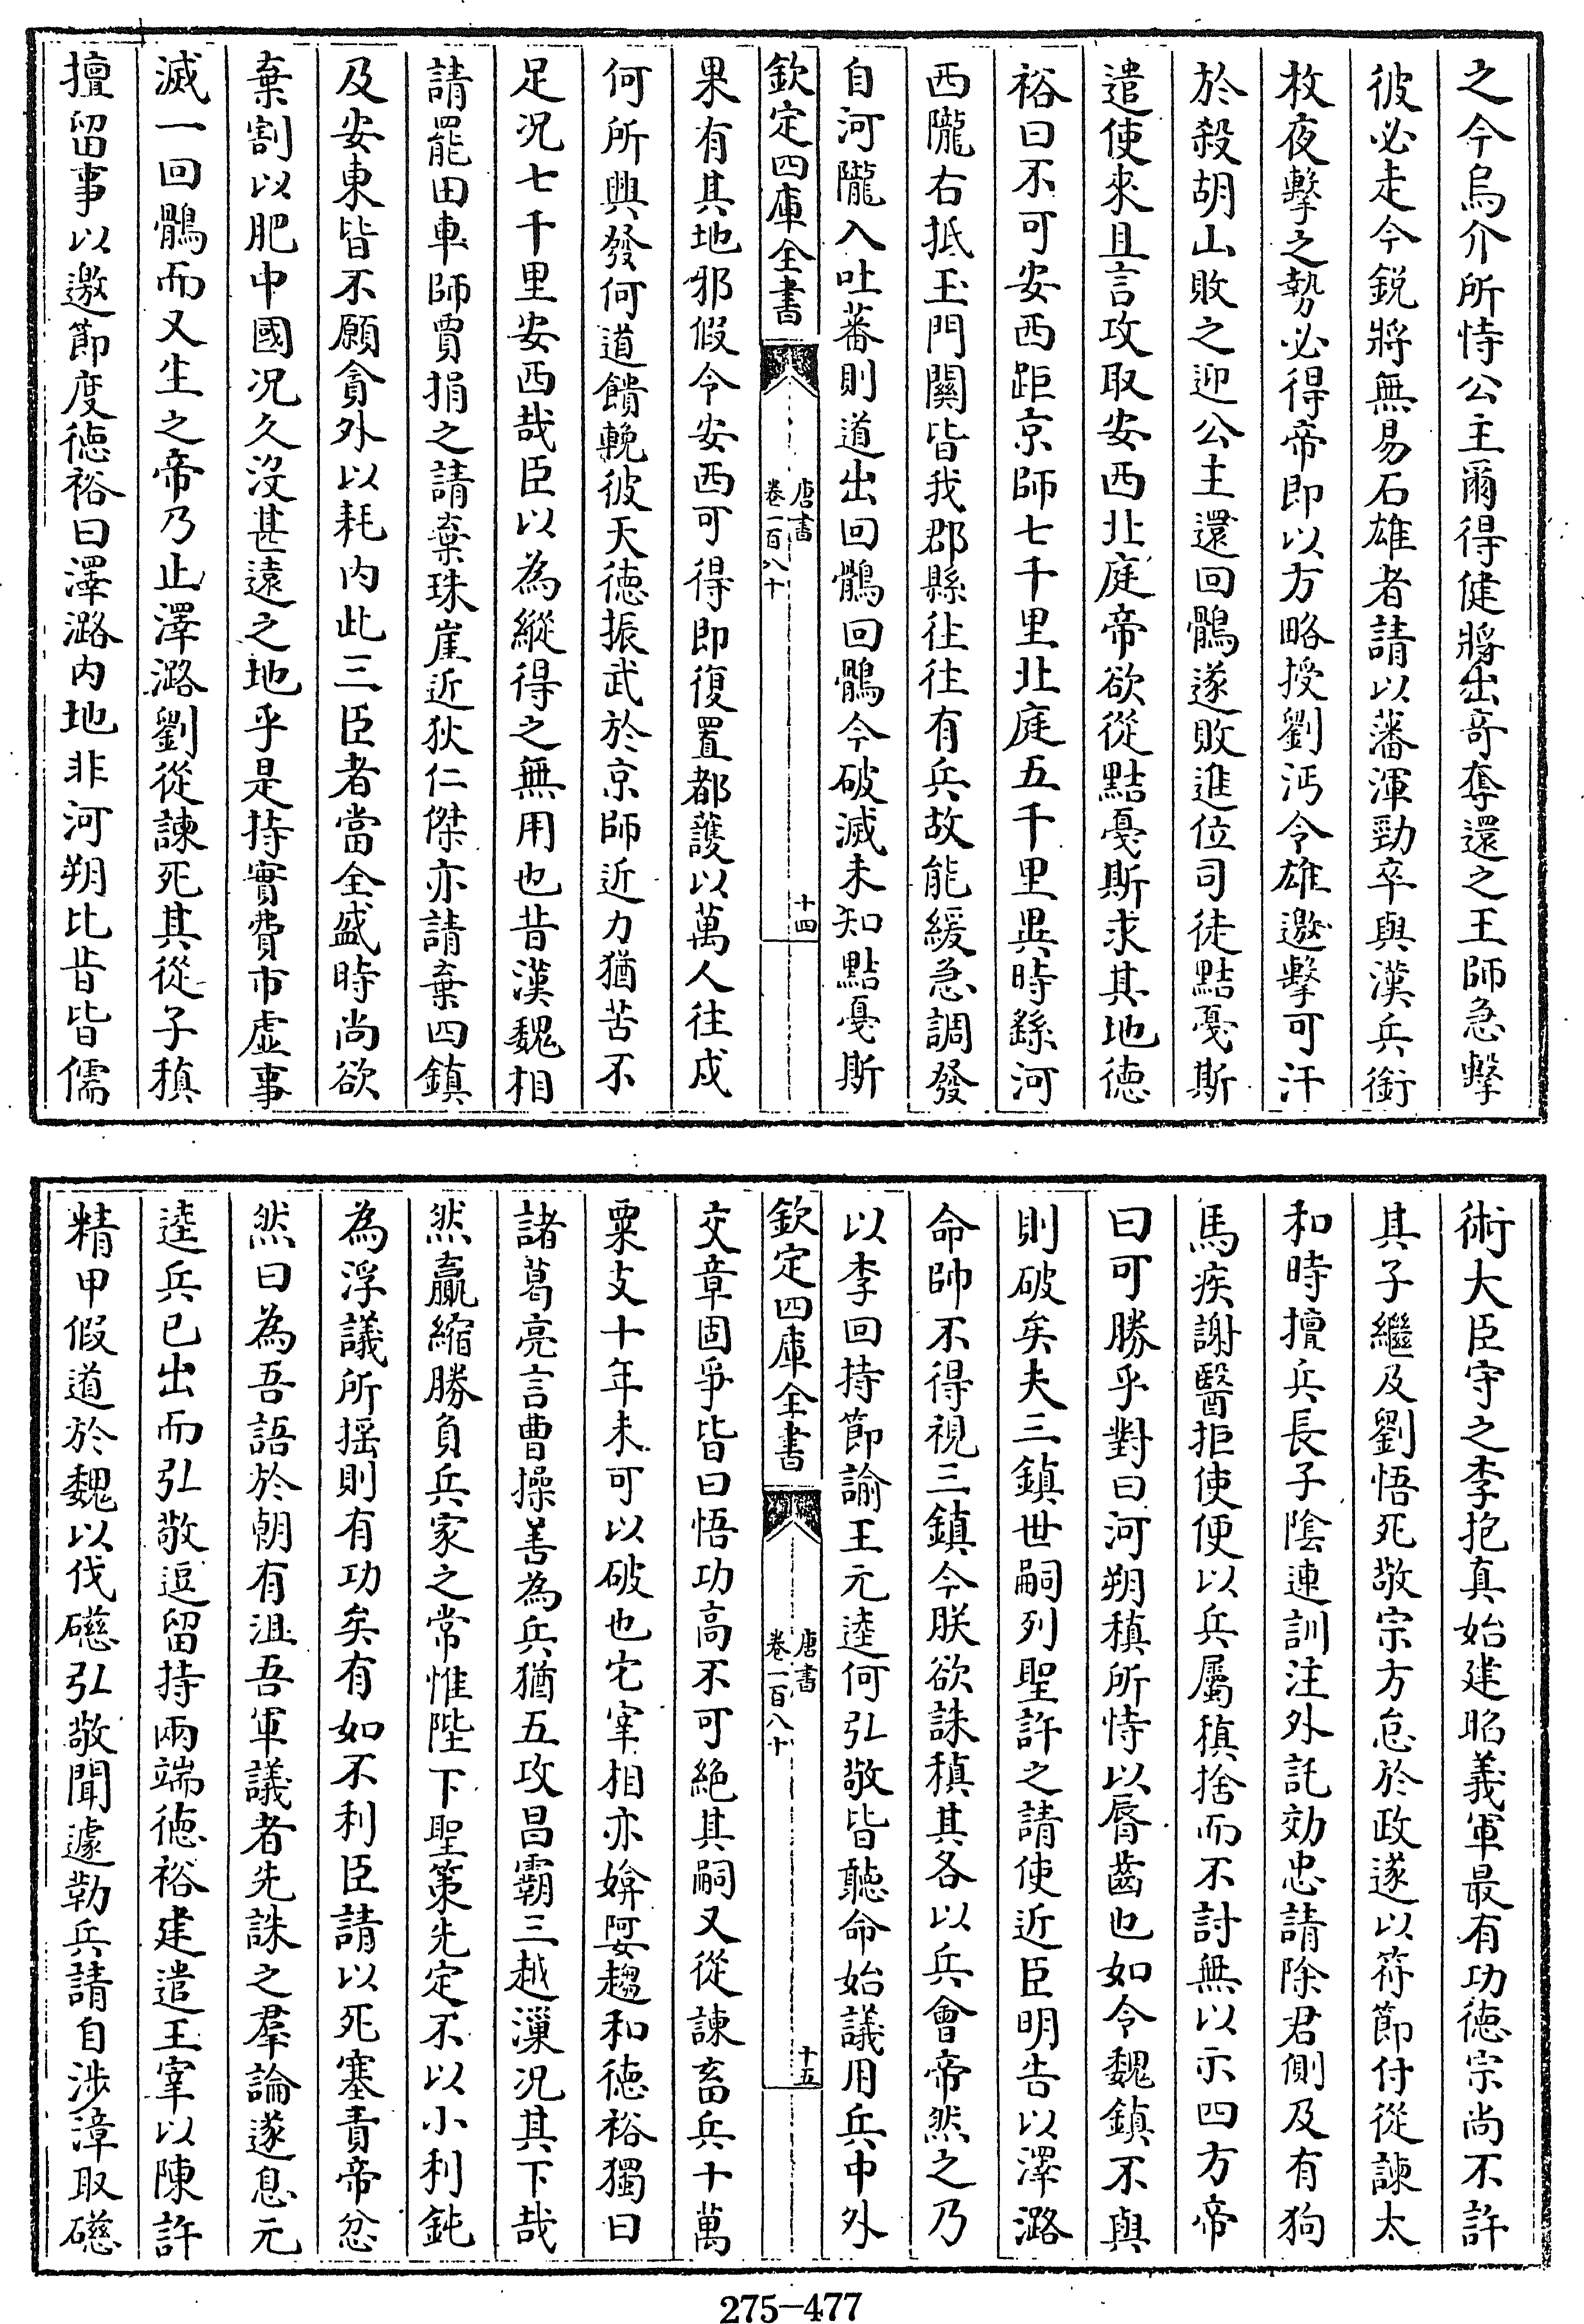 之今烏介所恃公主爾得健將出奇奪還之王師急擊
彼必走今銳將無易石雄者請以藩渾勁卒與漢兵銜
枚夜擊之勢必得帝即以方略授劉沔令雄邀擊可汗
於殺胡山敗之迎公主還回鶻遂敗進位司徒黠戛斯
遣使來且言攻取安西北庭帝欲從黠戛斯求其地德
裕曰不可安西距京師七千里北庭五千里異時繇河
西隴右抵玉門關皆我郡縣往往有兵故能緩急調發
自河隴入吐蕃則道出回鶻回鶻今破滅未知黠戛斯
欽定四庫全書
唐書
卷一百八十
十四
果有其地邪假令安西可得即復置都護以萬人往戍
何所興發何道饋輓彼天德振武於京師近力猶苦不
足況七千里安西哉臣以為縱得之無用也昔漢魏相
請罷田車師賈捐之請棄珠崖近狄仁傑亦請棄四鎮
及安東皆不願貪外以耗內此三臣者當全盛時尚欲
棄割以肥中國況久沒甚遠之地乎是持實費市虛事
滅一回鶻而又生之帝乃止澤潞劉從諫死其從子稹
擅留事以邀節度德裕曰澤潞內地非河朔比昔皆儒
術大臣守之李抱真始建昭義軍最有功德宗尚不許
其子繼及劉悟死敬宗方怠於政遂以符節付從諫太
和時擅兵長子陰連訓注外託効忠請除君側及有狗
馬疾謝醫拒使便以兵屬稹捨而不討無以示四方帝
曰可勝乎對曰河朔稹所恃以脣齒也如令魏鎮不與
則破矣夫三鎮世嗣列聖許之請使近臣明告以澤潞
命帥不得視三鎮今朕欲誅稹其各以兵會帝然之乃
以李回持節諭王元逵何弘敬皆聽命始議用兵中外
欽定四庫全書
唐書
卷一百八十
十五
交章固爭皆曰悟功高不可絕其嗣又從諫畜兵十萬
粟支十年未可以破也它宰相亦媕婀趨和德裕獨曰
諸葛亮言曹操善為兵猶五攻昌霸三越漅況其下哉
然贏縮勝負兵家之常惟陛下聖策先定不以小利鈍
為浮議所搖則有功矣有如不利臣請以死塞責帝忿
然曰為吾語於朝有沮吾軍議者先誅之羣論遂息元
逵兵已出而弘敬逗留持兩端德裕建遣王宰以陳許
精甲假道於魏以伐磁弘敬聞遽勒兵請自涉漳取磁
275-477